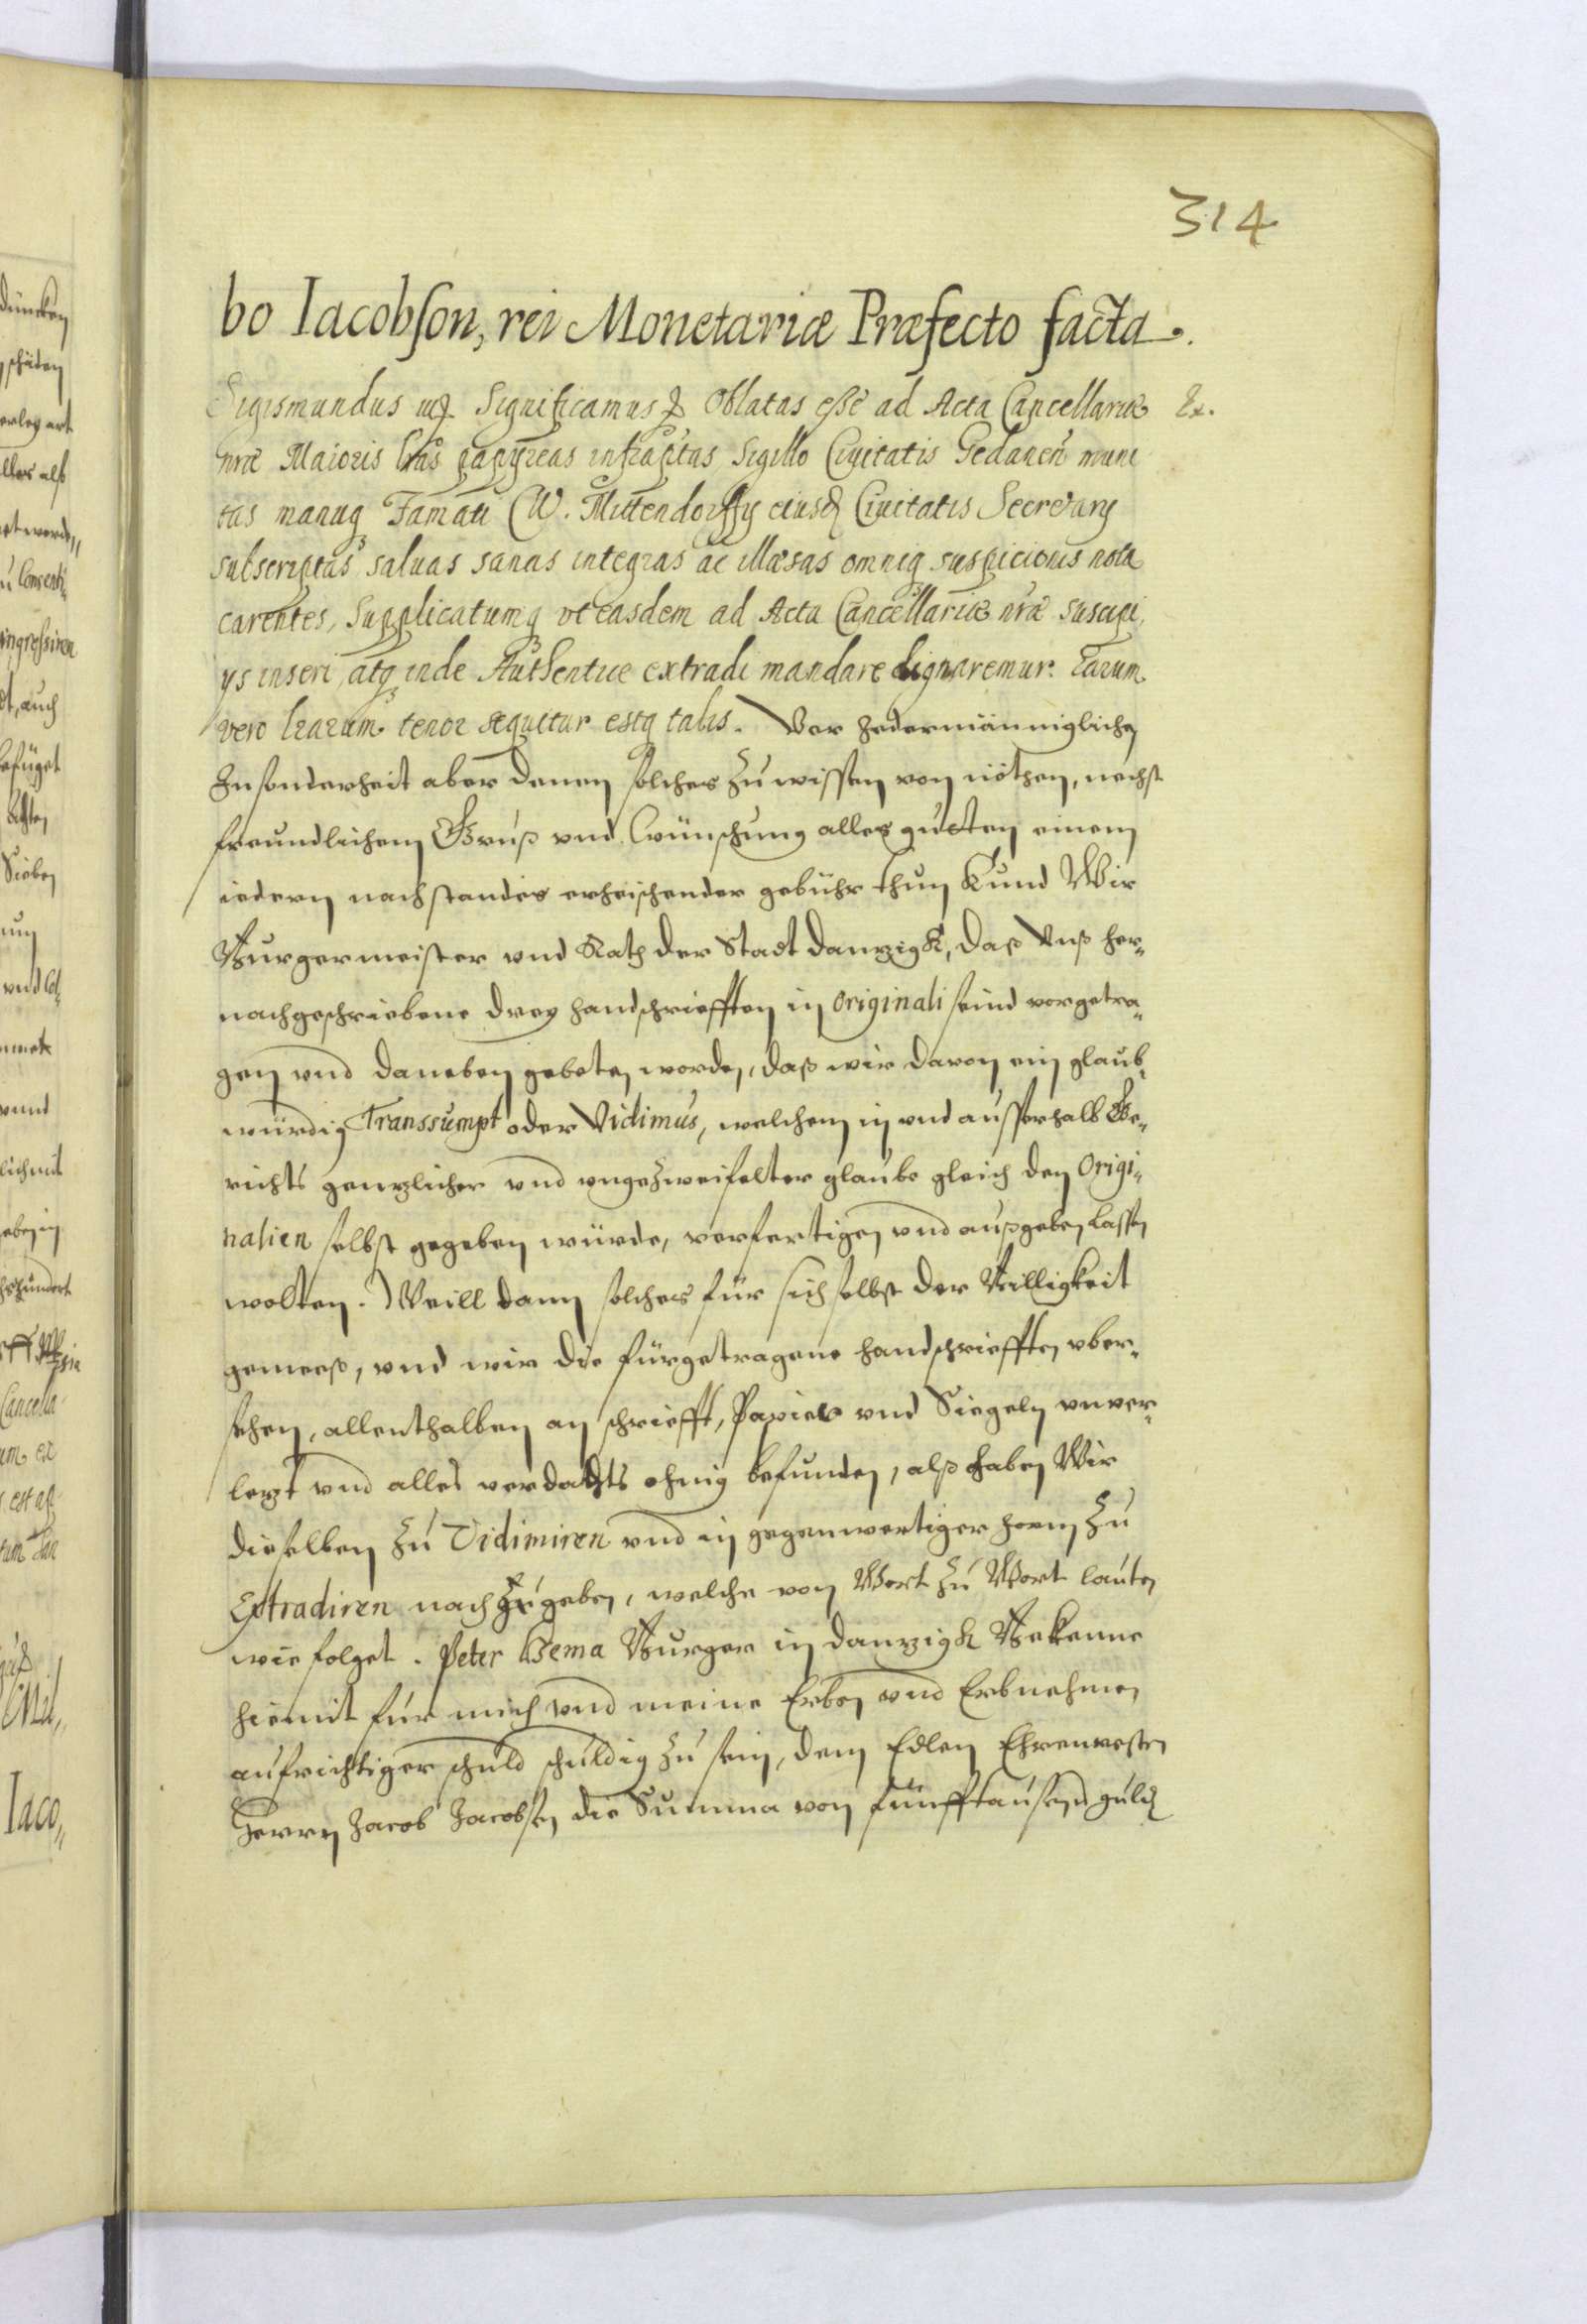 314
bo Iacobson, rei Monetariæ Præfecto facta.
Sigismundus Significamus Oblatas esse ad Acta Cancellariæ Ex.
nræ Maioris lras papyreas infrascptas Sigillo Ciuitatis Gedanen muni
tas manuq Famati W. Mittendorffy eiusd Ciuitatis Secretary
subscriptas saluas sanas integras ac illæsas omniq suspicionis nota
carentes, Supplicatumq vt easdem ad Acta Cancellariæ nræ suscipi,
ys inseri, atq inde Authentice extradi mandare dignaremur. Earum
vero lrarum tenor sequitur estq talis. Vor Jedermänniglichen
Insonderheit aber denen solches zu wissen von nöthen, nechst
freundlichem Gruß vnd Wünschung alles gutten einem
iedern nach standes erheischender gebühr thun Kund Wir
Burgermeister vnd Rath der Stadt Danzigk, Daß Vnß her-
nachgeschriebene drey handschriefften in Originali seind vorgetra-
gen vnd daneben gebeten worden, daß wir davon ein glaub-
würdig Transsumpt oder Vidimus, welchem in vnd ausserhalb Ge-
richts genzlicher vnd vngezweifelter glaube gleich den Origi-
nalien selbst gegeben würde, verfertigen vnd außgeben lassen
wolten. Weill dann solches für sich selbst der Billigkeit
gemeeß, vnd wir die fürgetragene handschriefften vber-
sehen, allenthalben an schriefft, Papier vnd Siegeln vnver-
lezt vnd alles verdachts ohnig befunden, alß haben Wir
dieselben zu Vidimiren vnd in gegenwertiger form zu
Extradiren nachzugeben, welche von Wort zu Wort lauten
wie folget. Peter Bema Burger in Danzigk Bekenne
hiemit für mich vnd meine Erben vnd Erbnehmen
aufrichtiger schuld schuldig zu sein, dem Edlen Ehrenvesten
Herren Jacob Jacobsen die Summa von fünfftausend guld